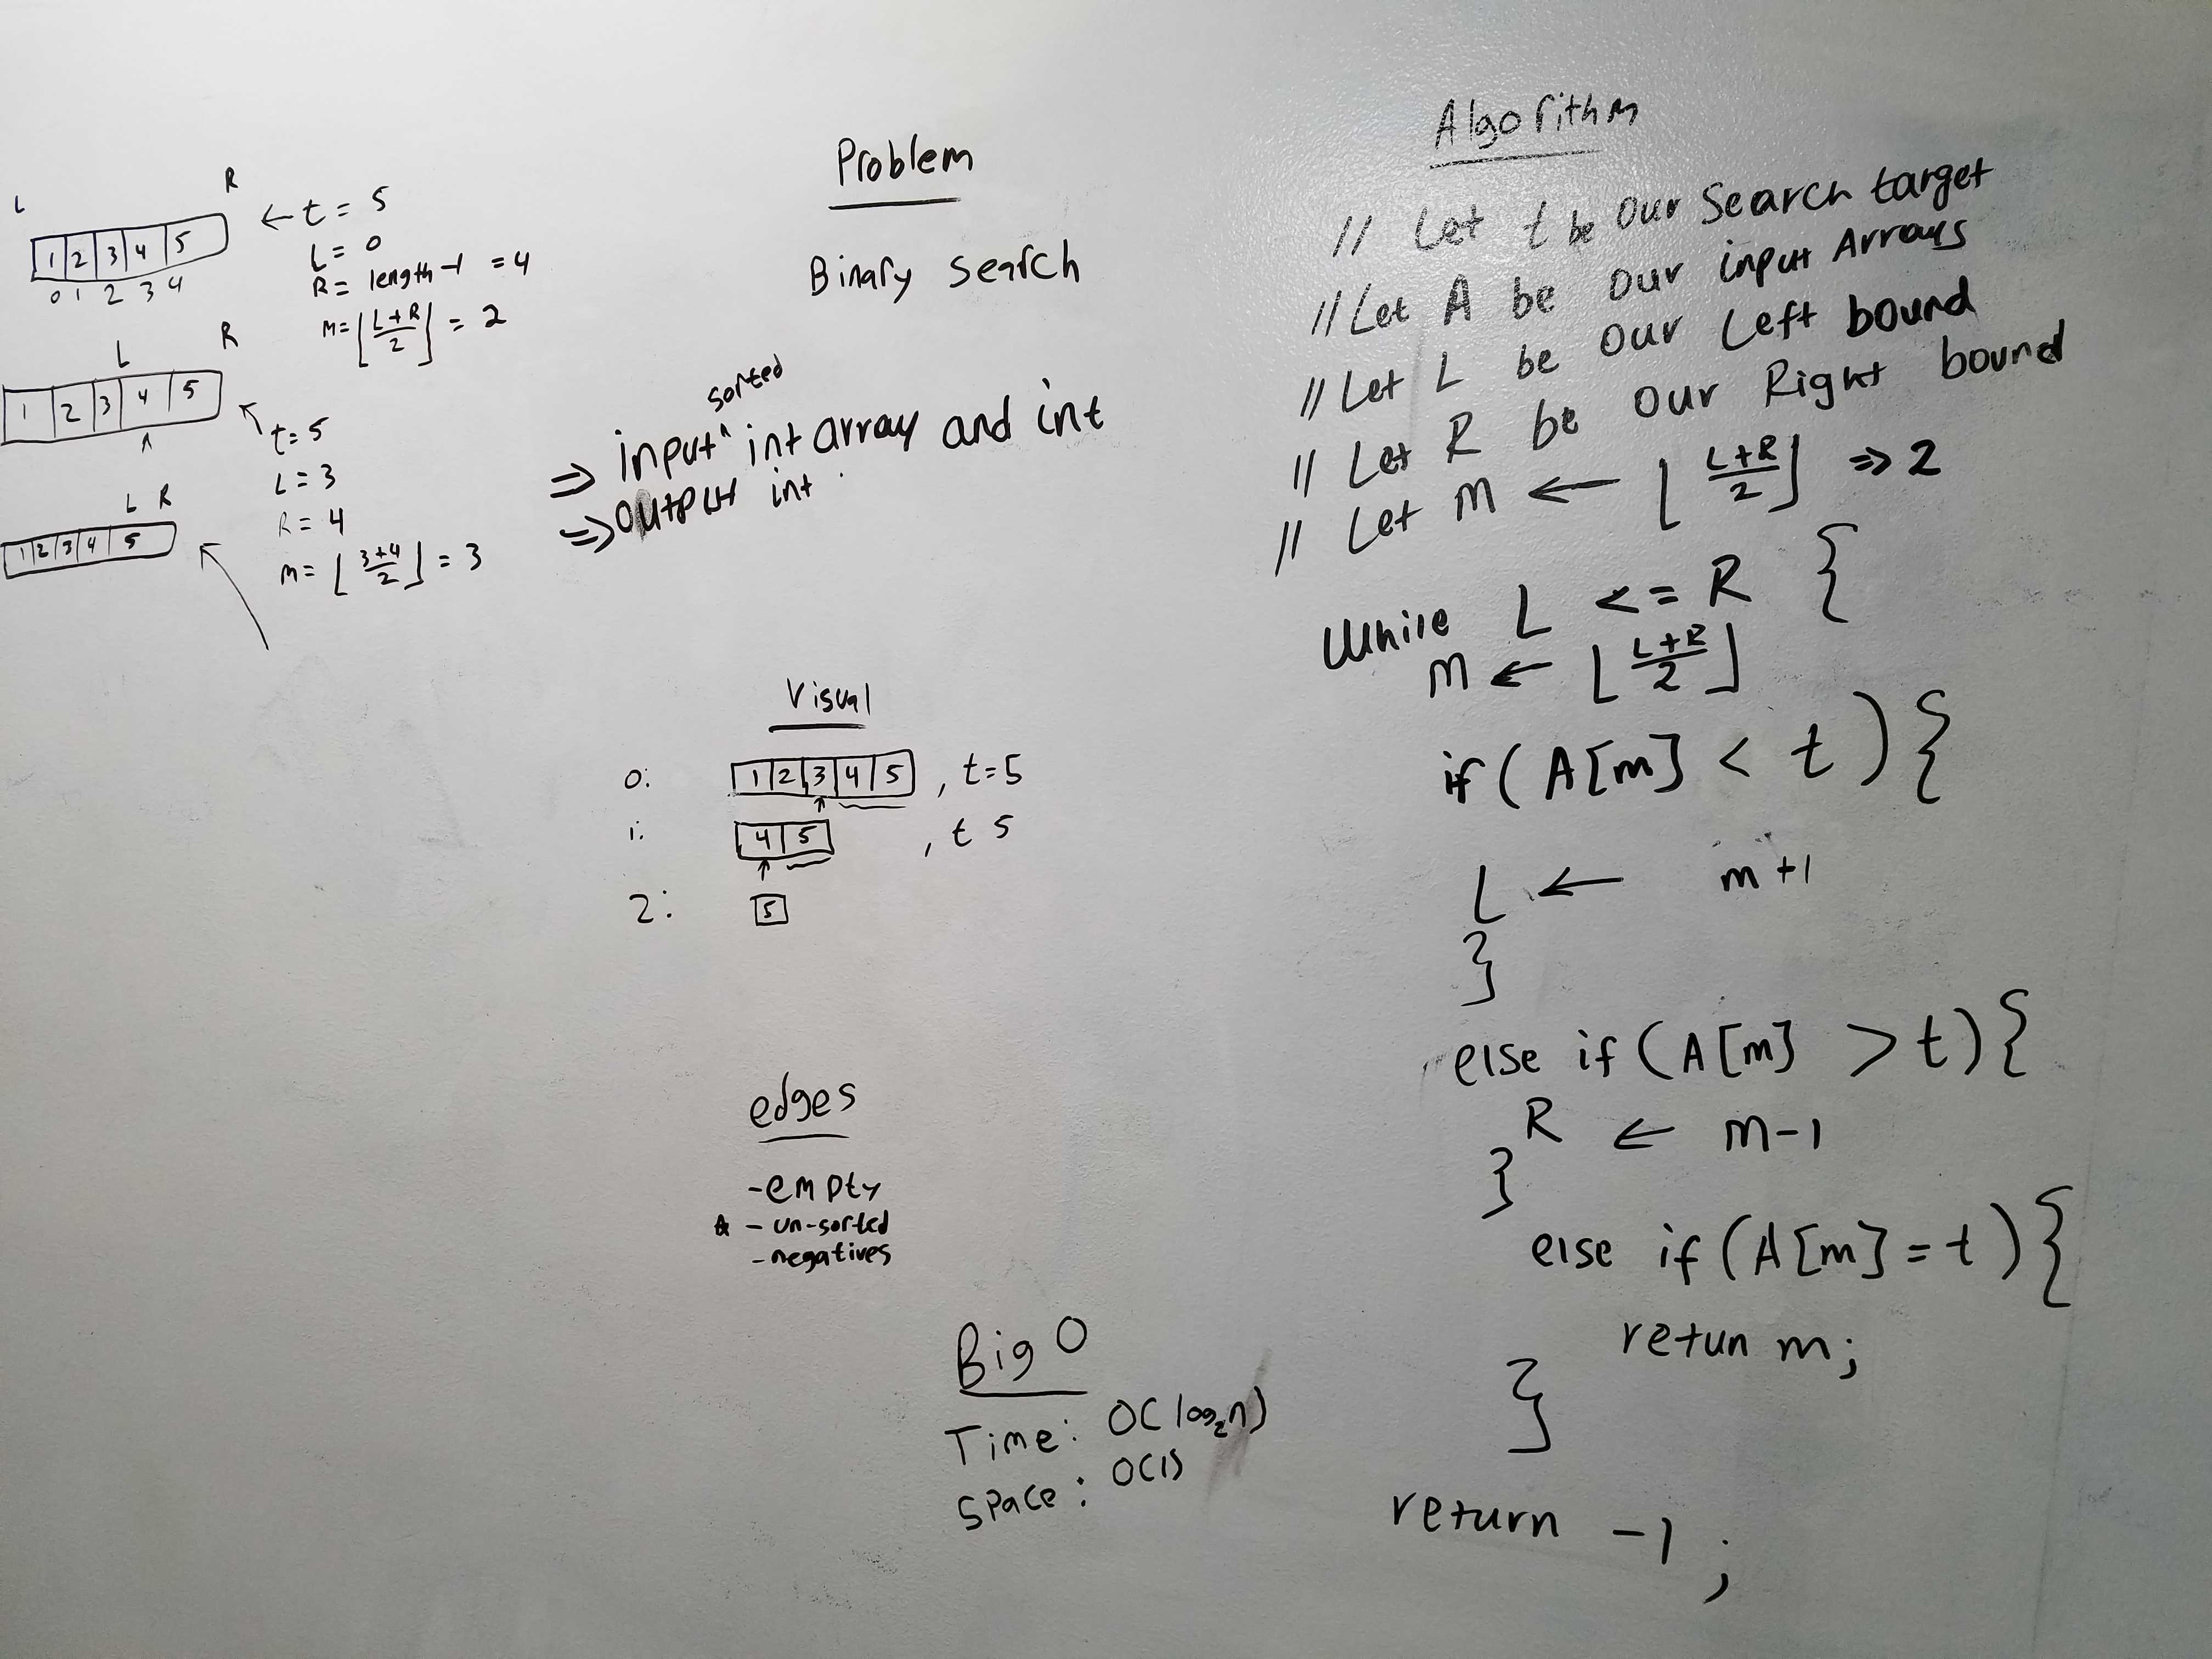 L R
1 2 3 4 5
0 1 2 3 4
← t = 5
L = 0
R = length-1 = 4
M = ⌊L+R/2⌋ = 2
L R
1 2 3 4 5
t=5
L=3
R=4
m= ⌊3+4/2⌋ = 3
L R
1 2 3 4 5
Problem
Binary Search
sorted
⇒ input ^ int array and int
⇒ output int
Visual
0: 1 2 3 4 5 , t=5
1: 4 5 , t 5
2: 5
edges
- empty
- un-sorted
- negatives
Big O
Time: O(log₂n)
Space: O(1)
Algorithm
// Let t be our Search target
// Let A be our input Arrays
// Let L be our Left bound
// Let R be our Right bound
// Let M ← ⌊L+R/2⌋ => 2
While L <= R {
m ← ⌊L+R/2⌋
if ( A[m] < t ) {
L ← m+1
}
else if ( A[m] > t) {
R ← m-1
}
else if ( A[m] = t ) {
retun m;
}
return -1;